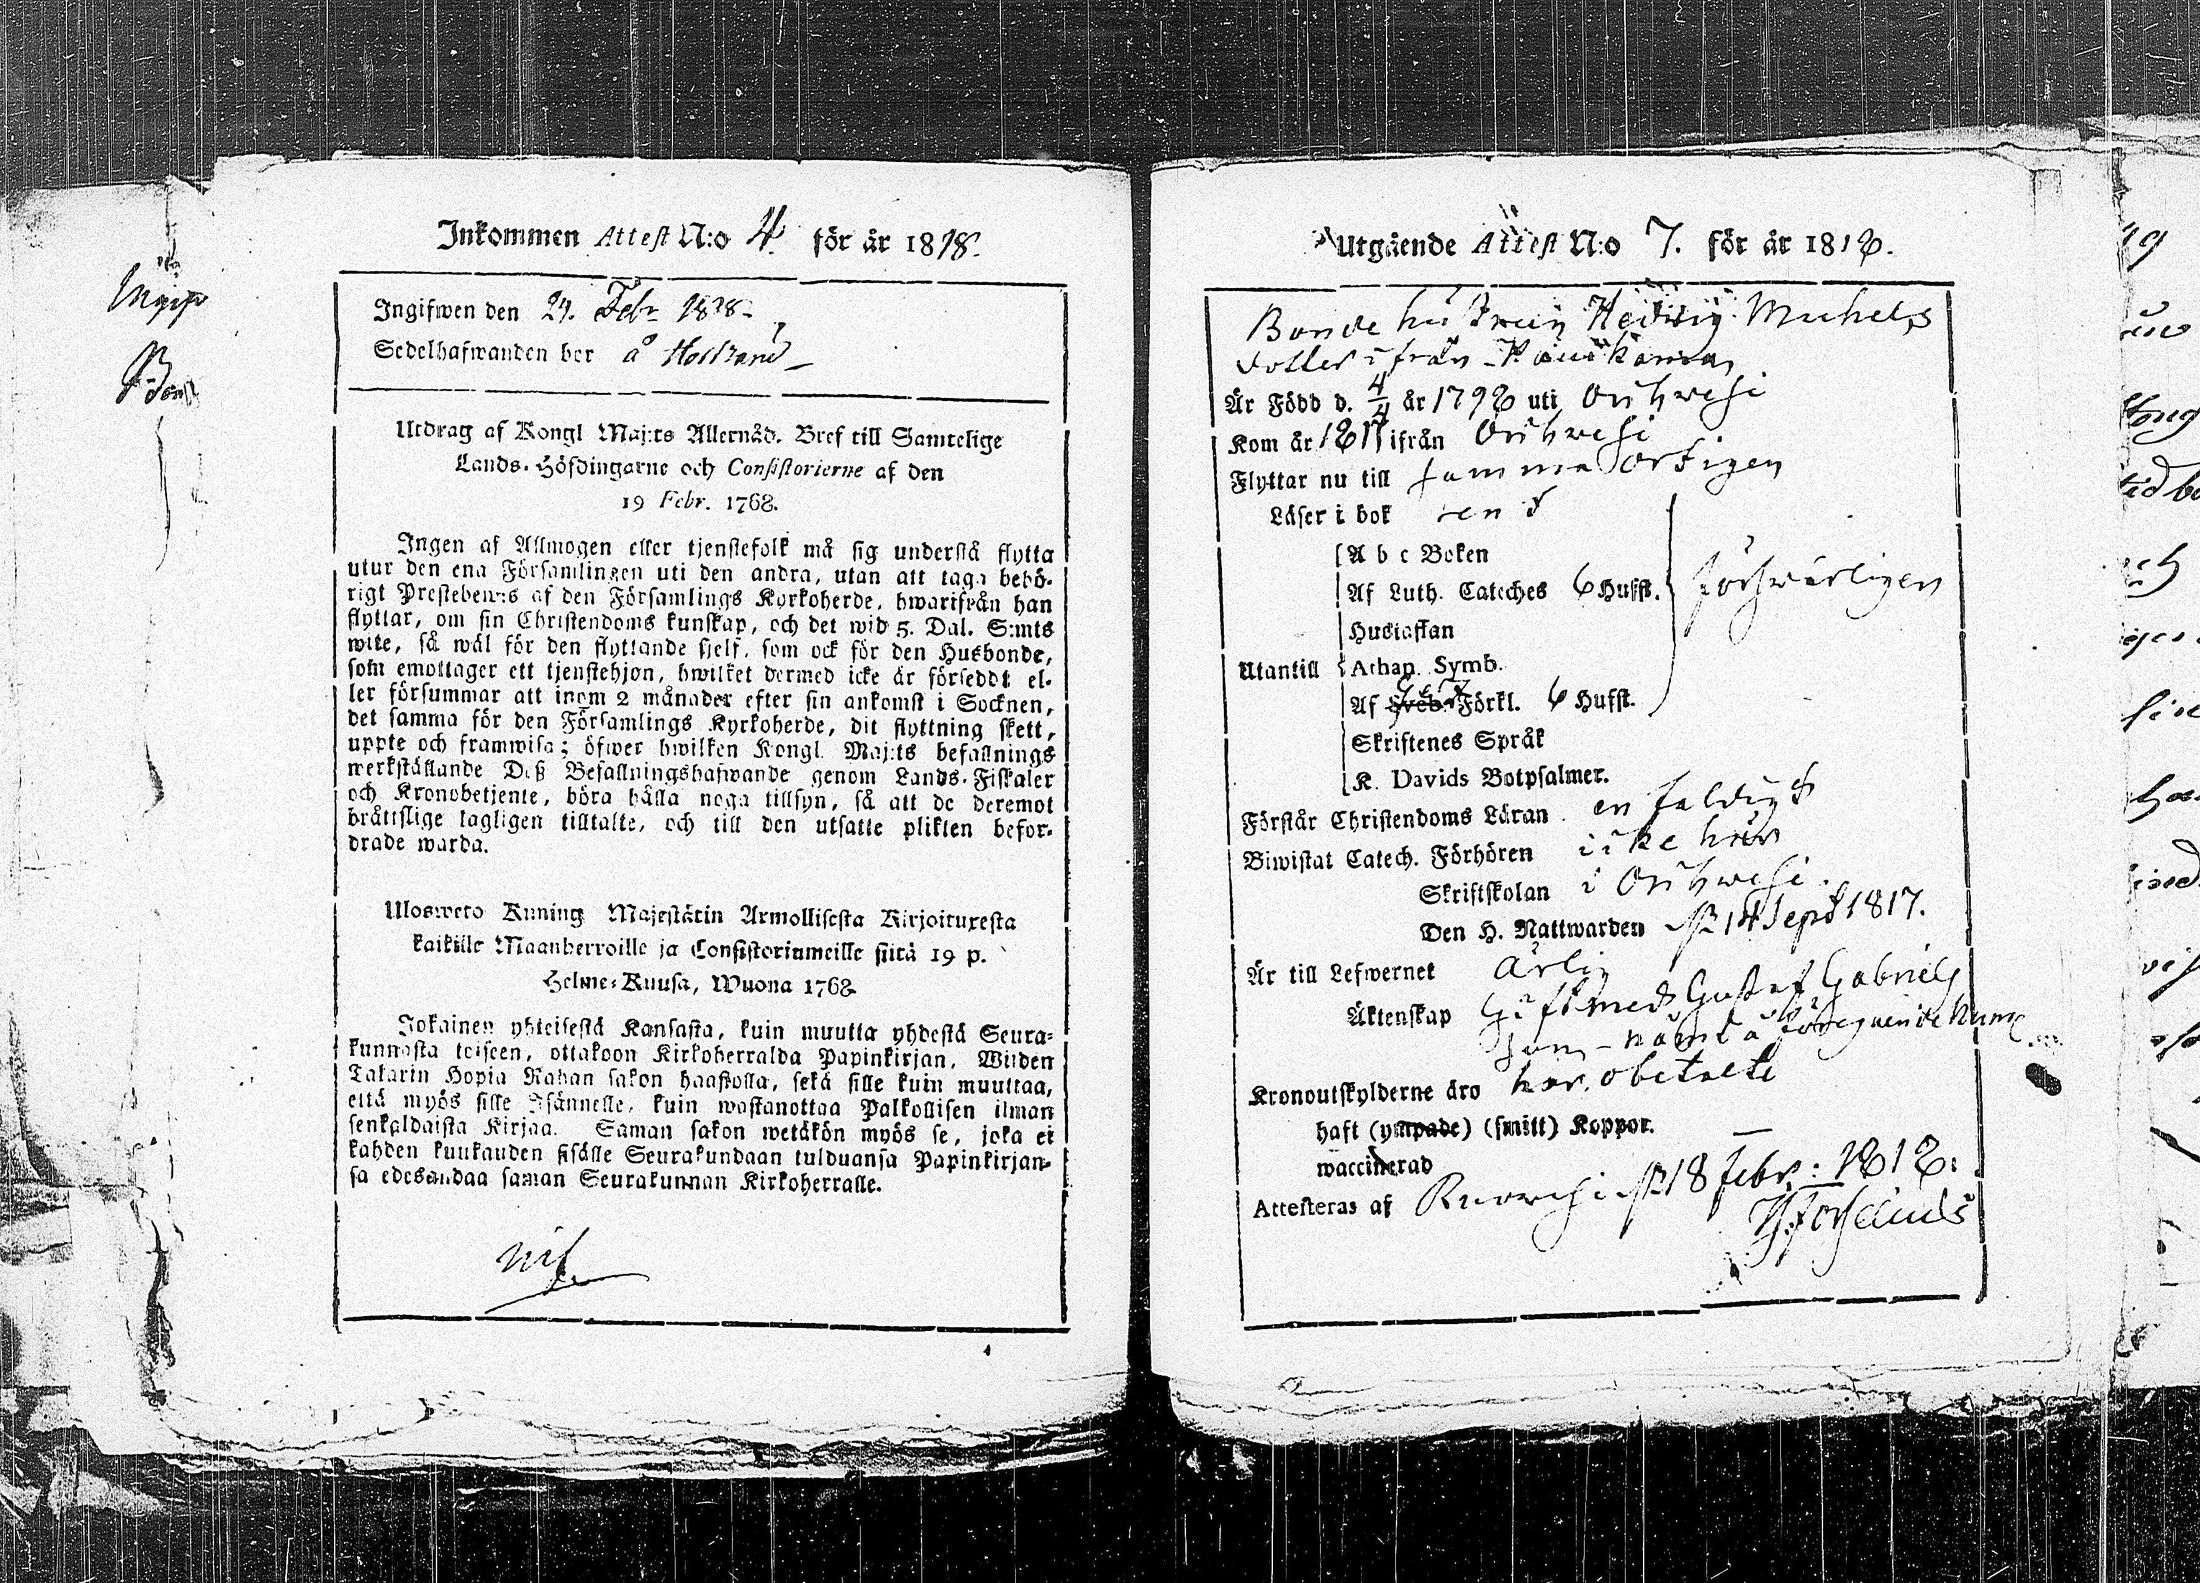 Inkommen Attest N:o 4. för år 1818.
Ingifwen den 24. Febr 1818.
Sedelhafwanden bor å
Utdrag af Kongl Maj:ts Allernåd. Bref till Samtelige
Lands-Höfdingarne och Consistorierne af den
19 Febr. 1768.
Ingen af Allmogen eller tjenstefolk må sig understå flytta
utur den ena Församlingen uti den andra, utan att taga behö-
rigt Prestebewis af den Församlings Kyrkoherde, hwarifrån han
flyttar, om sin Christendoms kunskap, och det wid 5. Dal. S:mts
wite, så wäl för den flyttande sjelf, som ock för den Husbonde,
som emottager ett tjenstehjon, hwilket dermed icke är förseddt el-
ler försummar att inom 2 månader efter sin ankomst i Socknen,
det samma för den Församlings Kyrkoherde, dit flyttning skett,
uppte och framwisa; öfwer hwilken Kongl. Maj:ts befallnings
werkställande Deß Befallningshafwande genom Lands-Fiskaler
och Kronobetjente, böra hålla noga tillsyn, så att de deremot
bråttslige lagligen tilltalte, och till den utsatte plikten befor-
drade warda.
Ulosweto Kuning Majestätin Armollisesta Kirjoituxesta
kaikille Maanherroille ja Consistoriumeille siitä 19 p.
Helme-Kuusa, Wuona 1768
Jokainen yhteisestä Kansasta, kuin muutta yhdestä Seura-
kunnasta toiseen, ottakoon Kirkoherralda Papinkirjan, Wiiden
Talarin Hopia Rahan sakon haastolla, sekä sille kuin muuttaa,
että myös sille Isännelle, kuin wastanottaa Palkollisen ilman
senkaldaista Kirjaa. Saman sakon wetäkön myös se, joka ei
kahden kuukauden sisälle Seurakundaan tulduansa Papinkirjan-
sa edesandaa saman Seurakunnan Kirkoherralle.
Utgående Attest N:o 7. för år 1818.
Bonde hustrun Hedvig Michels
dotter ifrån
Är Född d. 4/4 år 1798 uti Orihwesi
Kom år 1817 ifrån Orihwesi
Flyttar nu till samma ort igen
Läser i bok rent
A b c Boken
Af Luth. Cateches 6 Hufst. försvarligen
Hustaflan
Utantill Athan. Symb.
Af Sveb. Förkl. 6 Hufst.
Skriftenes Språk
K. Davids Botpsalmer.
Förstår Christendoms Läran enfaldigt
Biwistat Catech. Förhören icke här
Skriftskolan i Orihwesi.
Den H. Nattwarden d. 14 Sept 1817.
Är till Lefwernet ärlig
Äktenskap Gift med Gustaf Gabriels
son nämd å föregående Num
Kronoutskylderne äro har obetalte
haft (ympade) (smitt) Koppor. —
waccinerad
Attesteras af Ruowesi d. 18 Febr: 1818: